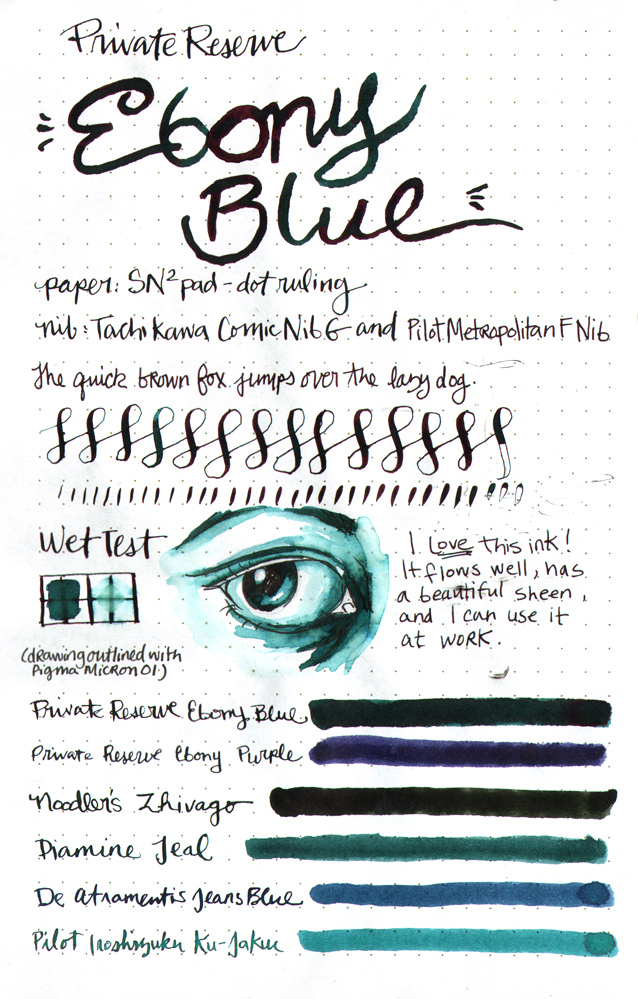 Private Reserve
Ebony
Blue
paper: SN² pad - dot ruling
nib: Tachikawa Comic Nib G and Pilot Metropolitan F Nib
The quick brown fox jumps over the lazy dog.
Wet Test
I Love this ink!
It flows well, has
a beautiful sheen,
and I can use it
at work.
(drawing outlined with
Pigma Micron 01.)
Private Reserve Ebony Blue
Private Reserve Ebony Purple
Noodler's Zhivago
Diamine Teal
De Atramentis Jeans Blue
Pilot Iroshizuku Ku-Jaku